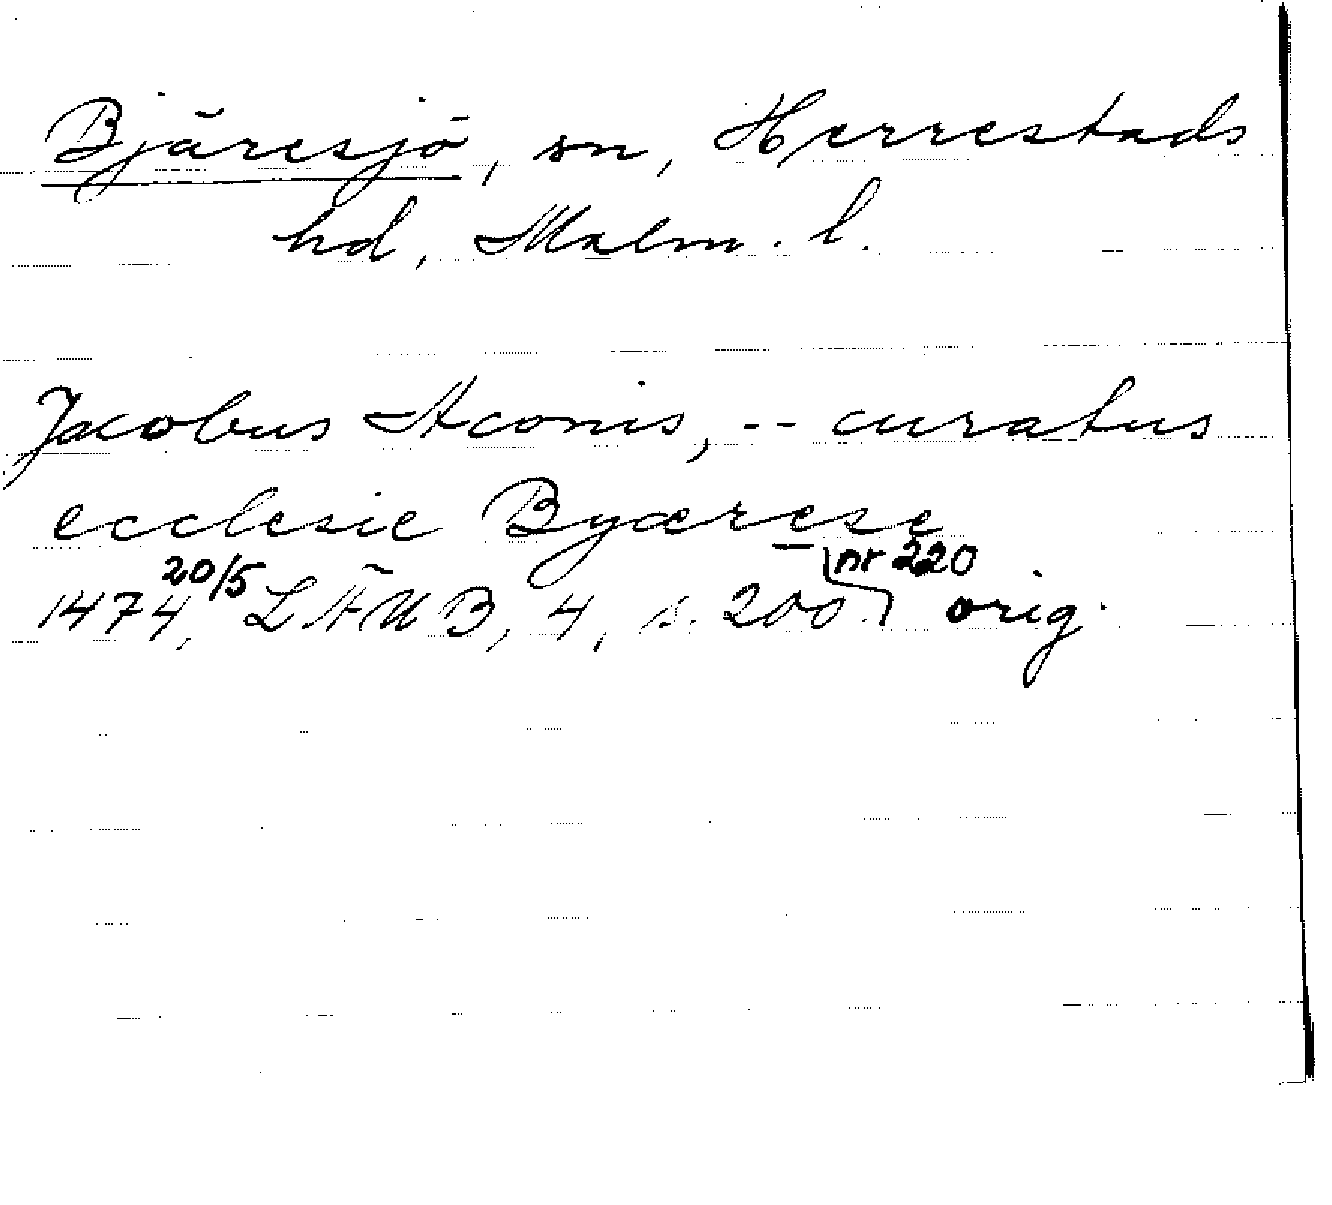 Bjäresjö, sn, Herrestads
hd, Malm. l.
Jacobus Aconis, -- curatus
ecclesie Byærese
1474 20/5, LÄUB, 4, s. 200 nr 220 orig.